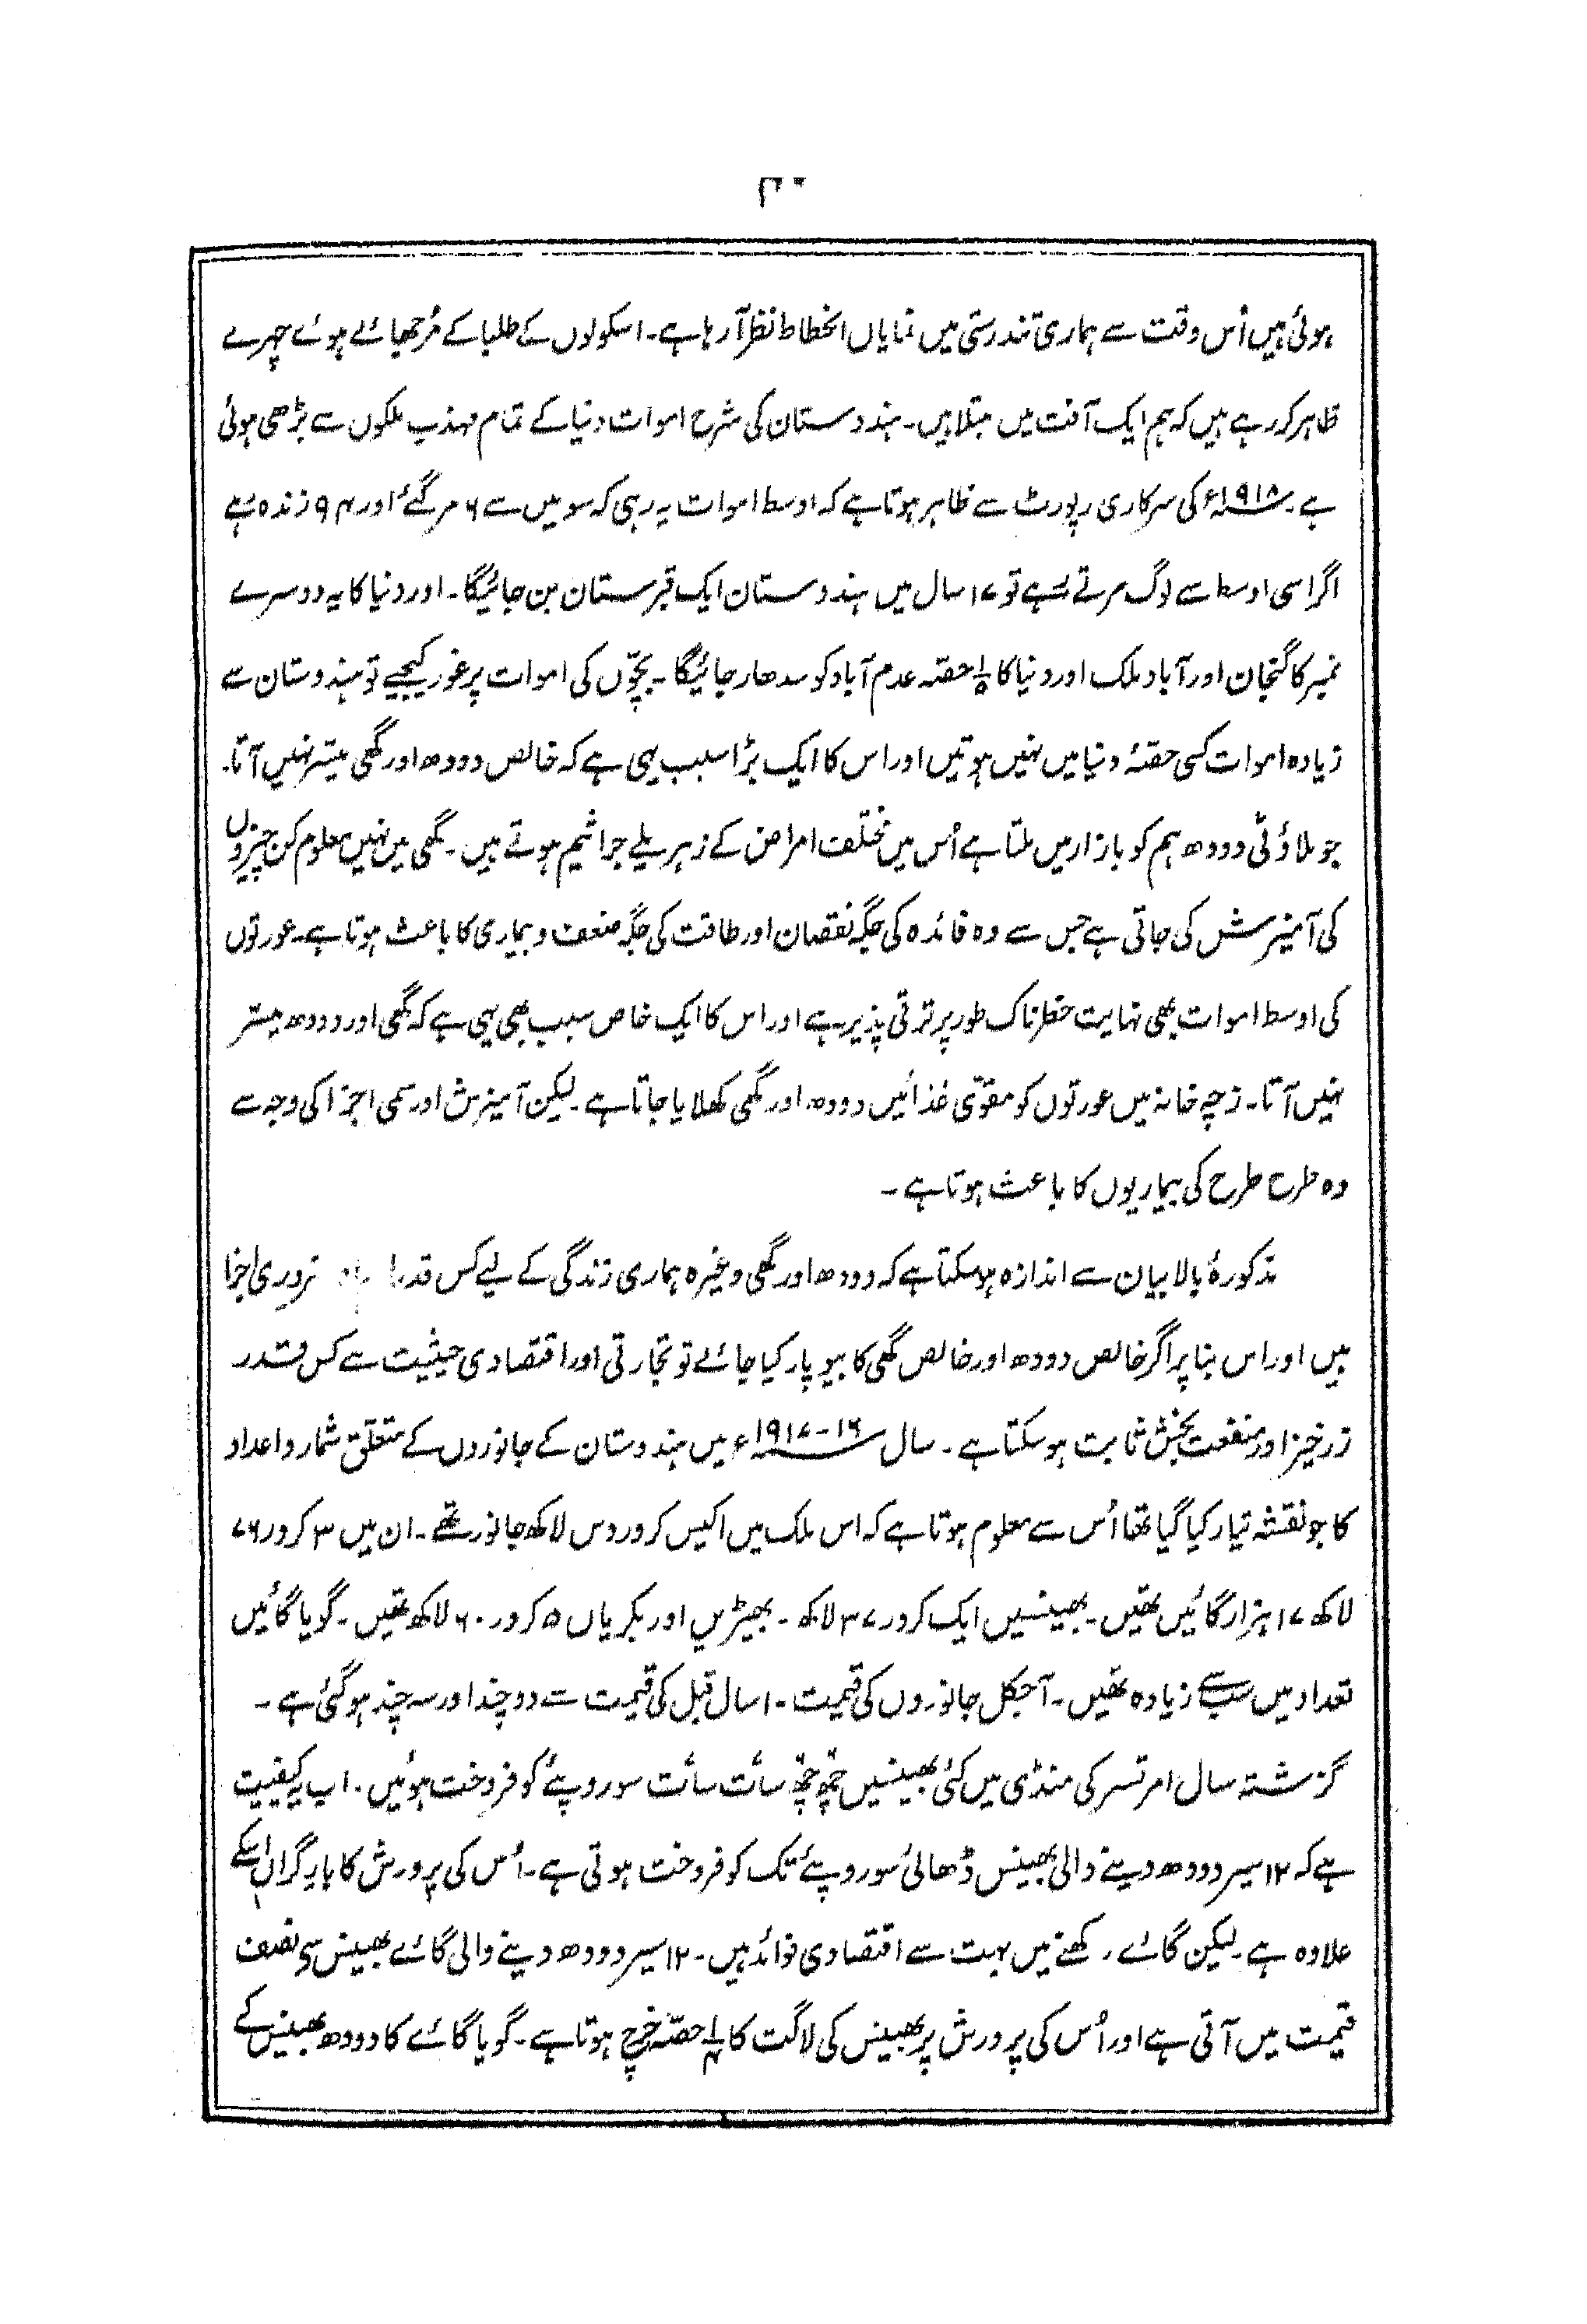 ہوئی ہیں اُس وقت سے ہماری تندرستی میں نمایاں انحطاط نظر آرہا ہے۔ اسکولوں کے طلبا کے مُرجھائے ہوئے چہرے
ظاہر کر رہے ہیں کہ ہم ایک آفت میں مبتلا ہیں۔ ہندوستان کی شرح اموات دنیا کے تمام مہذب ملکوں سے بڑھی ہوئی
ہے۔ ۱۹۱۸ء کی سرکاری رپورٹ سے ظاہر ہوتا ہے کہ اوسط اموات یہ رہی کہ سو میں سے ۶ مر گئے اور ۹۴ زندہ رہے
اگر اسی اوسط سے لوگ مرتے رہے تو ۱۷ سال میں ہندوستان ایک قبرستان بن جائیگا۔ اور دنیا کا یہ دوسرے
نمبر کا گنجان اور آباد ملک اور دنیا کا ۱/۵ حصّہ عدم آباد کو سدھار جائیگا۔ بچّوں کی اموات پر غور کیجیے تو ہندوستان سے
زیادہ اموات کسی حصّۂ دنیا میں نہیں ہوتیں اور اس کا ایک بڑا سبب یہی ہے کہ خالص دودھ اور گھی میسّر نہیں آتا۔
جو ملاؤنی دودھ ہم کو بازار میں ملتا ہے اُس میں مختلف امراض کے زہریلے جراثیم ہوتے ہیں۔ گھی میں نہیں معلوم کن چیزوں
کی آمیزش کی جاتی ہے جس سے وہ فائدہ کی جگہ نقصان اور طاقت کی جگہ ضعف و بیماری کا باعث ہوتا ہے۔ عورتوں
کی اوسط اموات بھی نہایت خطرناک طور پر ترقی پذیر ہے اور اس کا ایک خاص سبب بھی یہی ہے کہ گھی اور دودھ میسّر
نہیں آتا۔ زچہ خانہ میں عورتوں کو مقوّی غذائیں دودھ اور گھی کھلایا جاتا ہے۔ لیکن آمیزش اور سمی اجزا کی وجہ سے
وہ طرح طرح کی بیماریوں کا باعث ہوتا ہے۔
مذکورۂ بالا بیان سے اندازہ ہوسکتا ہے کہ دودھ اور گھی وغیرہ ہماری زندگی کے لیے کس قدر ضروری اجزا
ہیں اور اس بنا پر اگر خالص دودھ اور خالص گھی کا بیوپار کیا جائے تو تجارتی اور اقتصادی حیثیت سے کس قدر
زرخیز اور منفعت بخش ثابت ہوسکتا ہے۔ سال ۱۶-۱۹۱۷ء میں ہندوستان کے جانوروں کے متعلّق شمار و اعداد
کا جو نقشہ تیار کیا گیا تھا اُس سے معلوم ہوتا ہے کہ اس ملک میں اکیس کرور دس لاکھ جانور تھے۔ ان میں ۳ کرور ۷۶
لاکھ ۱۷ ہزار گائیں تھیں۔ بھینسیں ایک کرور ۳۷ لاکھ۔ بھیڑیں اور بکریاں ۵ کرور ۶۰ لاکھ تھیں۔ گویا گائیں
تعداد میں سب سے زیادہ تھیں۔ آجکل جانوروں کی قیمت ۱۰ سال قبل کی قیمت سے دو چند اور سہ چند ہوگئی ہے۔
گزشتہ سال امرتسر کی منڈی میں کئی بھینسیں چھ چھ سات سات سو روپئے کو فروخت ہوئیں۔ اب یہ کیفیت
ہے کہ ۱۲ سیر دودھ دینے والی بھینس ڈھائی سو روپئے تک کو فروخت ہوتی ہے۔ اُس کی پرورش کا بارِ گراں اسکے
علاوہ ہے۔ لیکن گائے رکھنے میں بہت سے اقتصادی فوائد ہیں۔ ۱۲ سیر دودھ دینے والی گائے بھینس سے نصف
قیمت میں آتی ہے اور اُس کی پرورش پر بھینس کی لاگت کا ۱/۴ حصّہ خرچ ہوتا ہے۔ گویا گائے کا دودھ بھینس کے